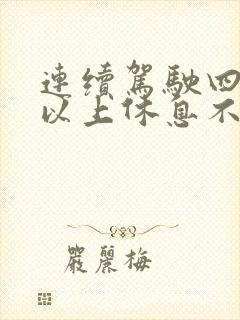 連續駕駛四
以上休息不
嚴麗梅